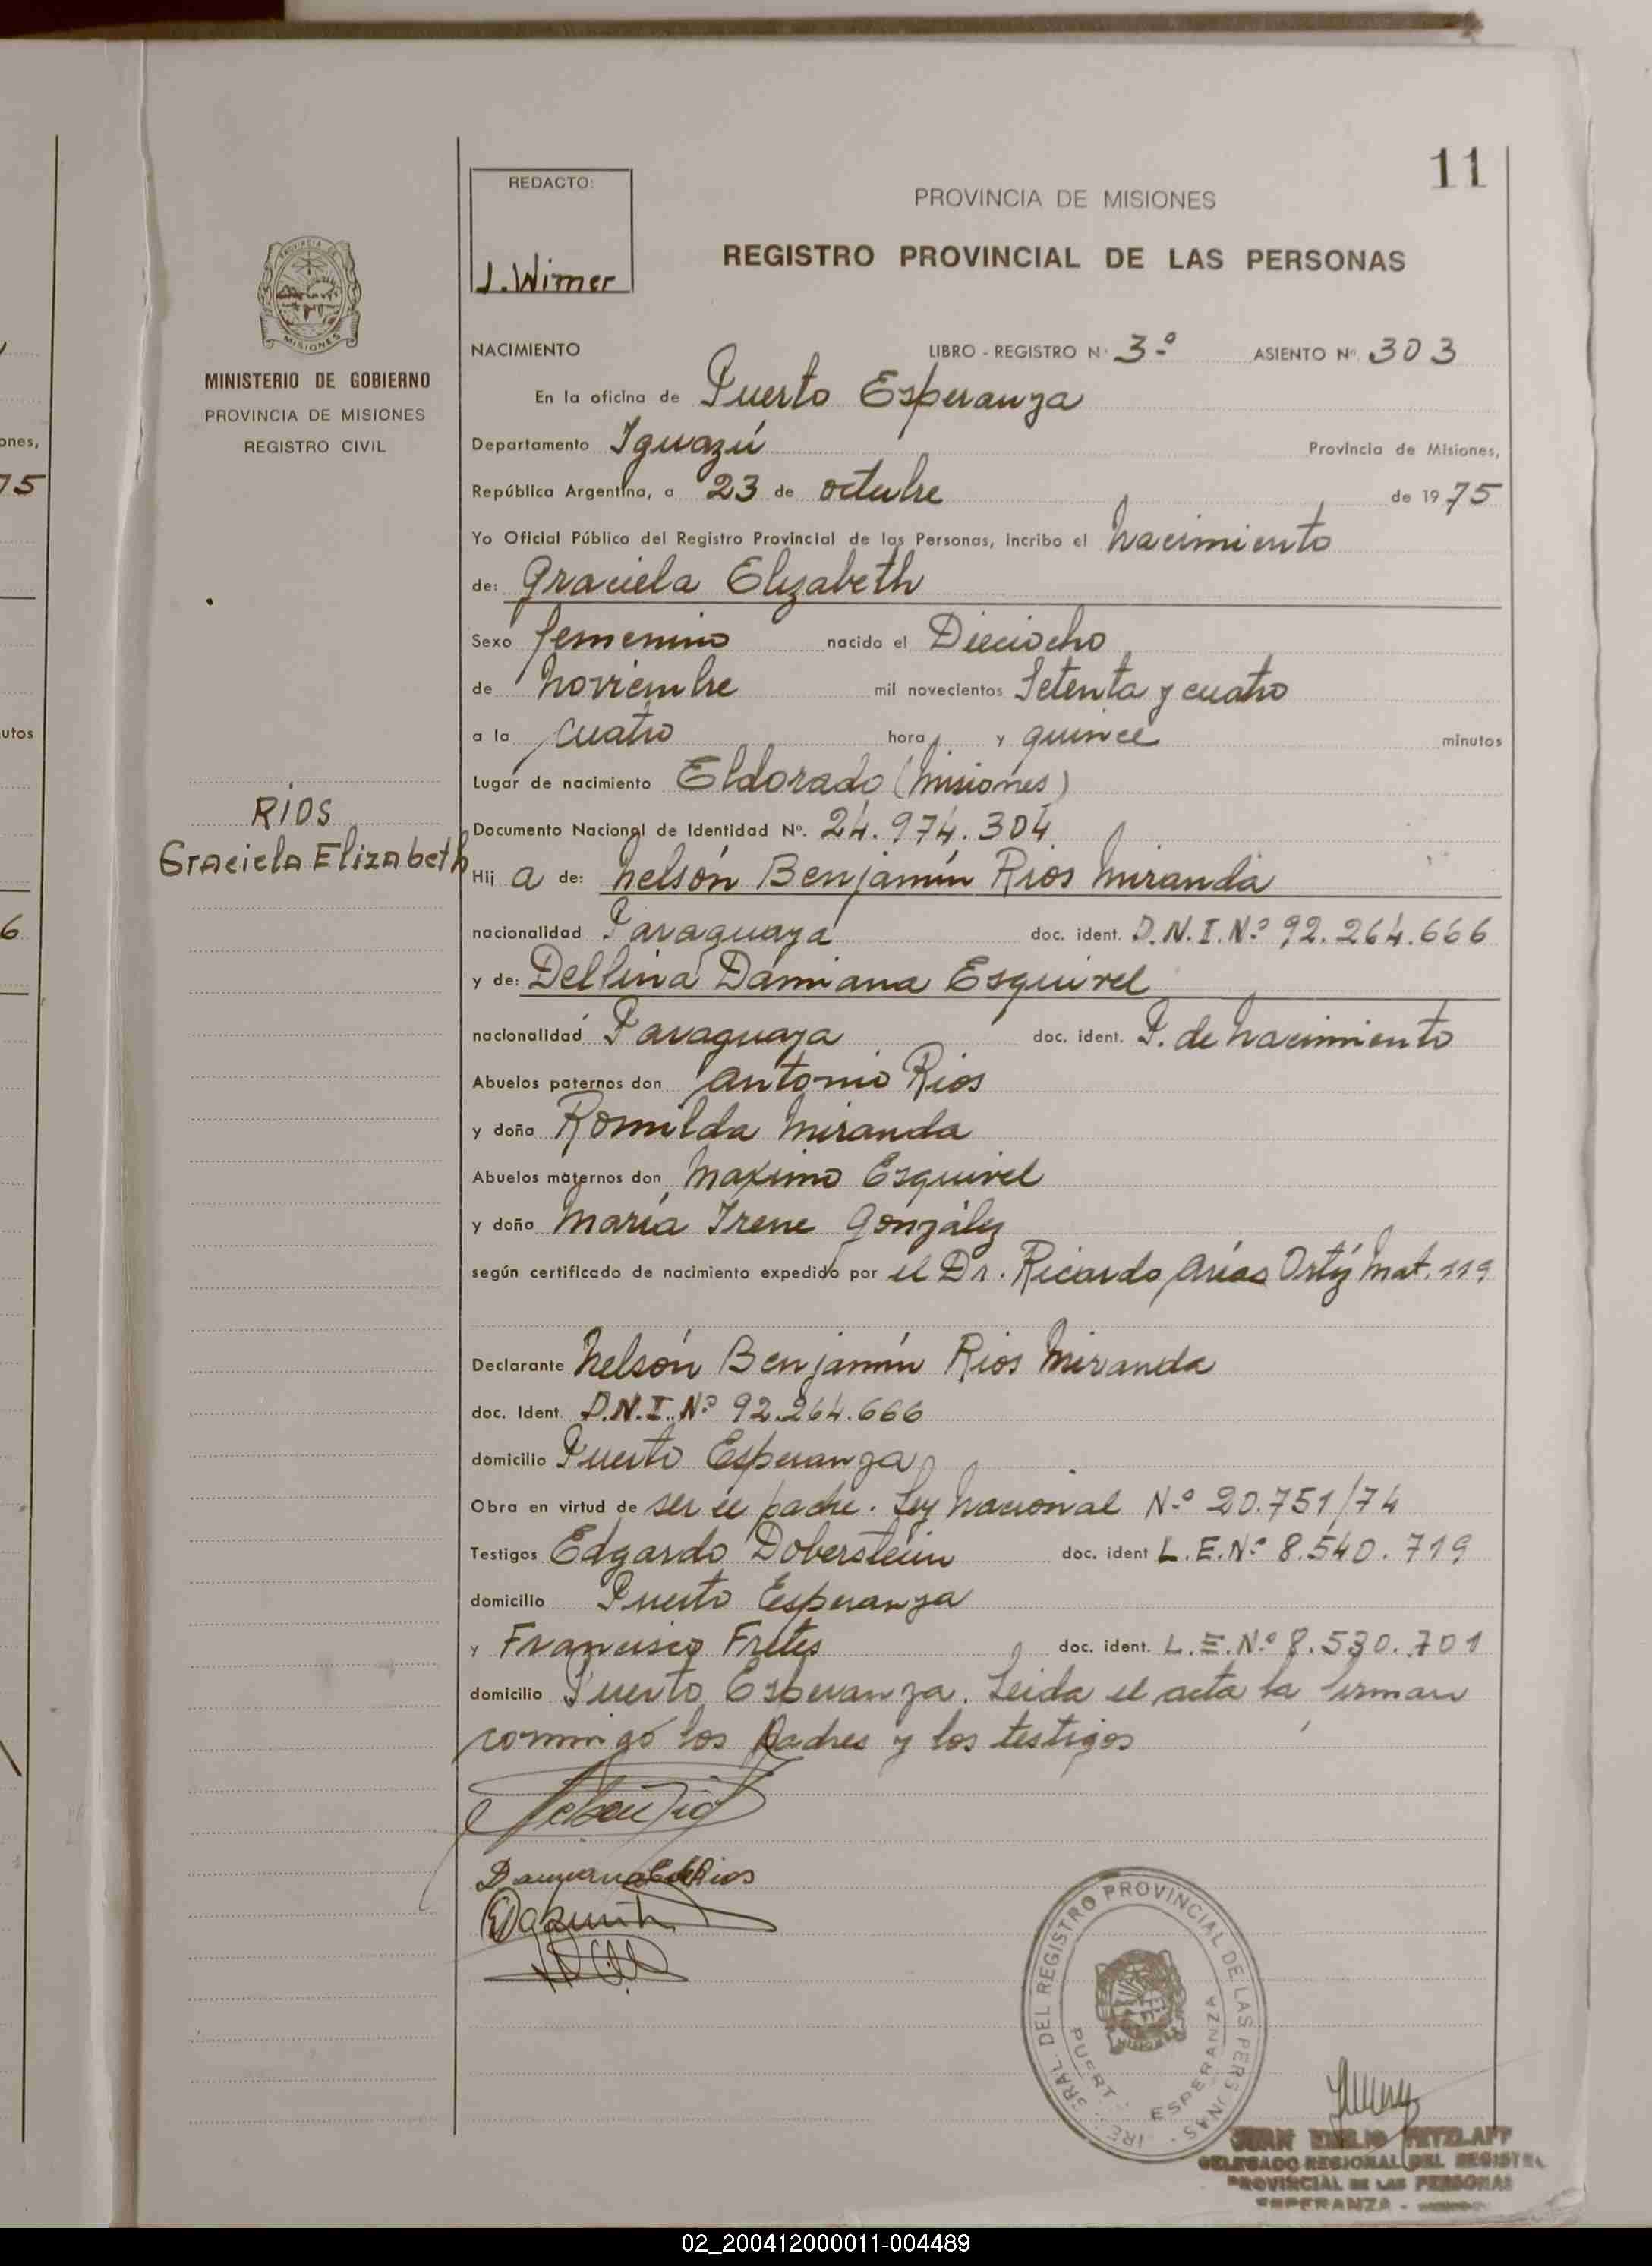 11
REDACTO:
J. Wimer
PROVINCIA DE MISIONES
REGISTRO PROVINCIAL DE LAS PERSONAS
MISIONES
MINISTERIO DE GOBIERNO
PROVINCIA DE MISIONES
REGISTRO CIVIL
ones,
75
utos
6
RÍOS
Graciela Elizabeth
NACIMIENTO LIBRO - REGISTRO N· 3-º ASIENTO Nº. 303
En la oficina de Puerto Esperanza
Departamento Iguazú Provincia de Misiones,
República Argentina, a 23 de octubre de 1975
Yo Oficial Público del Registro Provincial de las Personas, incribo el Nacimiento
de: Graciela Elizabeth
Sexo femenino nacido el Dieciocho
de Noviembre mil novecientos Setenta y cuatro
a la cuatro hora y quince minutos
Lugar de nacimiento Eldorado (Misiones)
Documento Nacional de Identidad Nº. 24.974.304
Hij a de: Nelsón Benjamín Rios Miranda
nacionalidad Paraguaya doc. ident. D.N.I.Nº 92.264.666
y de: Delfina Damiana Esquivel
nacionalidad Paraguaya doc. ident. P. de Nacimiento
Abuelos paternos don Antonio Rios
y doña Romilda Miranda
Abuelos maternos don Maximo Esquivel
y doña María Irene González
según certificado de nacimiento expedido por el Dr. Ricardo Arias Ortíz Mat. 119
Declarante Nelsón Benjamín Rios Miranda
doc. Ident. D.N.I. Nº 92.264.666
domicilio Puerto Esperanza
Obra en virtud de ser el padre. Ley Nacional N-º 20.751/74
Testigos Edgardo Doberstein doc. ident L.E.Nº 8.540.719
domicilio Puerto Esperanza
y Francisco Fretes doc. ident. L.E.Nº 8.530.701
domicilio Puerto Esperanza. Leida el acta la firman
conmigo los padres y los testigos
GRAL. DEL REGISTRO PROVINCIAL DE LAS PERSONAS
ESPERANZA
JUAN EMILIO
DELEGADO REGIONAL DEL REGISTRO
PROVINCIAL DE LAS PERSONAS
ESPERANZA -
02_200412000011-004489